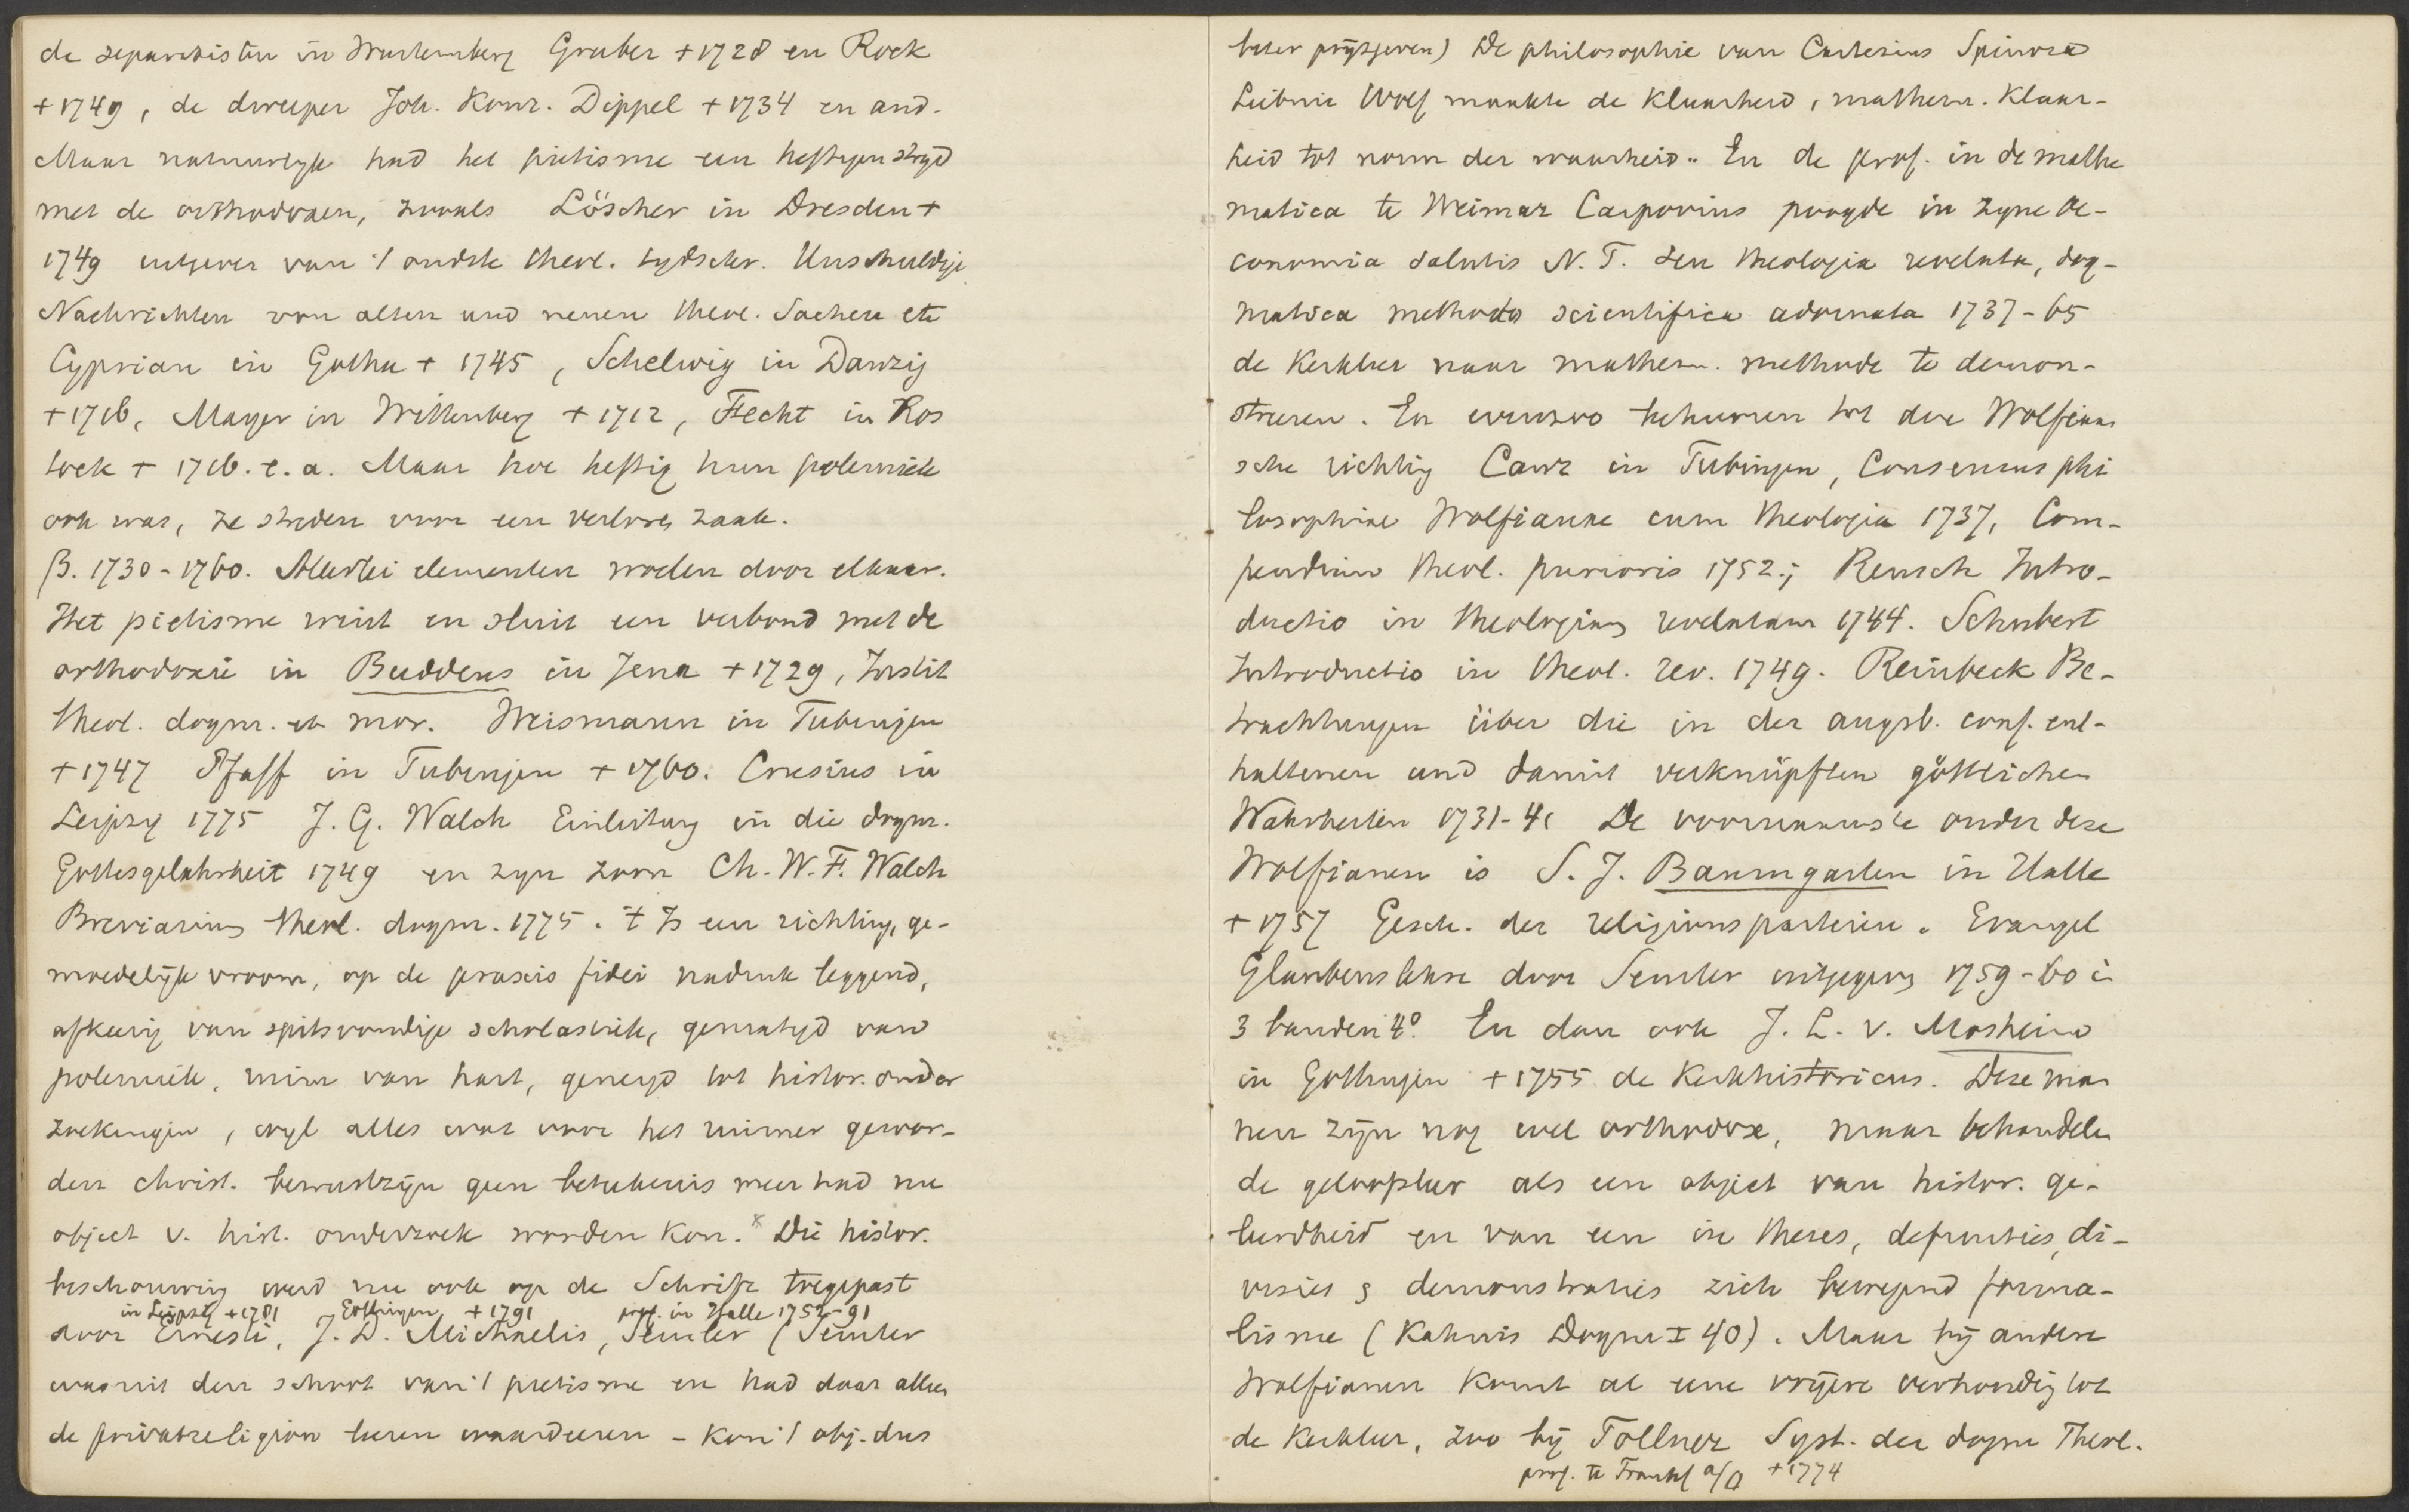 de separatisten in Wurtemberg Gruber + 1728 en Rock
+ 1749, de dweeper Joh. Konr. Dippel + 1734 en and.
Maar natuurlyk had het pietisme een heftigen stryd
met de orthodoxen, zooals Löscher in Dresden +
1749 uitgever van 't oudste theol. tydschr. Unschuldige
Nachrichten von alten und neuen theol. Sachen etc
Cyprian in Gotha + 1745, Schelwig in Danzig
+ 1716, Mayer in Wittenberg + 1712, Fecht in Ros
tock + 1716. e. a. Maar hoe heftig hun polemiek
ook was, ze streden voor een verloren zaak.
β. 1730-1760. Allerlei elementen woelen door elkaar.
Het pietisme wint en sluit een verbond met de
orthodoxie in Buddeus in Jena + 1729, Instit
theol. dogm. et mor. Weismann in Tubingen
+ 1747 Pfaff in Tubingen + 1760. Crusius in
Leipzig 1775 J. G. Walch Einleitung in die dogm.
Gottesgelahrheit 1749 en zyn zoon Ch. W. F. Walch
Breviarium theol. dogm. 1775. 't Is een richting, ge-
moedelijk vroom, op de praxis fidei nadruk leggend,
afkeerig van spitsvondige scholastiek, gematigd van
polemiek, ruim van hart, geneigd tot histor. onder
zoekingen, wyl alles wat voor het ruimer gewor-
den christ. bewustzijn geen beteekenis meer had nu
object v. hist. onderzoek worden kon. * Die histor.
beschouwing werd nu ook op de Schrift toegepast
in Leipzig + 1781 Göttingen + 1791 prof. in Halle 1752-91
door Ernesti, J. D. Michaelis, Semler (Semler
was uit den school van 't pietisme en had daar alleen
de privatreligion leeren waardeeren - kon 't obj. dus
beter prijsgeven) De philosophie van Cartesius Spinoza
Leibniz Wolf maakte de klaarheid, mathem. klaar-
heid tot norm der waarheid. En de prof. in de mathe
matica te Weimar Carpovius poogde in zyne Oe-
conomia salutis N. T. seu theologia revelata, dog-
matica methodo scientifica adornata 1737-65
de kerkleer naar mathem. methode te demon-
streren. En evenzoo behooren tot die Wolfiaan
sche richting Canz in Tubingen, Consensus phi
losophiae Wolfianae cum theologia 1737, Com-
pendium theol. purioris 1752.; Reusch Intro-
ductio in theologiam revelatam 1744. Schubert
Introductio in theol. rev. 1749. Reinbeck Be-
trachtungen über die in der augsb. conf. ent-
haltenen und damit verknüpften göttlichen
Wahrheiten 1731-41 De voornaamste onder deze
Wolfianen is S. J. Baumgarten in Halle
+ 1757 Gesch. der religionsparteien. Evangel
Glaubenslehre door Semler uitgegeven 1759-60 in
3 banden 4º. En dan ook J. L. v. Mosheim
in Gottingen + 1755 de kerkhistoricus. Deze man
nen zijn nog wel orthodox, maar behandelen
de geloofsleer als een object van histor. ge-
leerdheid en van een in theses, definities, di-
visies & demonstraties zich bewegend forma-
lisme (Kahnis Dogm I 40). Maar bij andere
Wolfianen komt al eene vrijere verhouding tot
de kerkleer, zoo bij Tollner Syst. der dogm Theol.
prof. te Frankf a/O + 1774